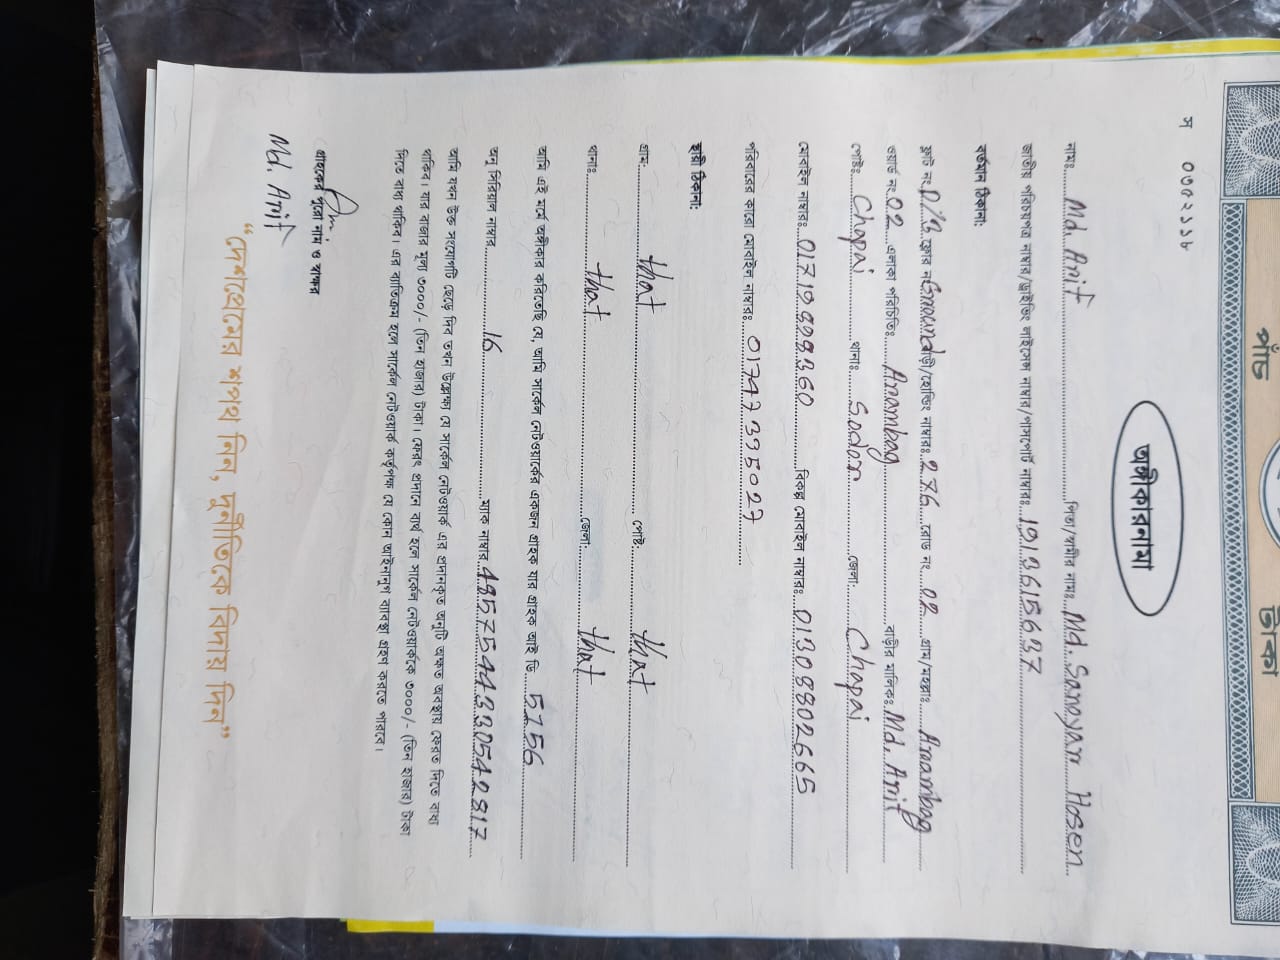 পাঁচ টাকা
স ০৩৫২১১৮
অঙ্গীকারনামা
নামঃ Md. Arif পিতা/স্বামীর নামঃ Md. Sanoyar Hosen
জাতীয় পরিচয়পত্র নাম্বার/ড্রাইভিং লাইসেন্স নাম্বার/পাসপোর্ট নাম্বারঃ 1913615637
বর্তমান ঠিকানা:
ফ্লাট নং ফ্লোর নং Ground বাড়ী/হোল্ডিং নাম্বারঃ 276 রোড নং 02 গ্রাম/মহল্লাঃ Arambag
ওয়ার্ড নং 02 এলাকা পরিচিতিঃ Arambag বাড়ীর মালিকঃ Md. Arif
পোষ্টঃ Chapai থানাঃ Sador জেলা: Chapai
মোবাইল নাম্বারঃ বিকল্প মোবাইল নাম্বারঃ 01308802665
পরিবারের কারো মোবাইল নাম্বারঃ 01747335027
স্থায়ী ঠিকানা:
গ্রাম: that পোষ্ট: that
থানাঃ that জেলা: that
আমি এই মর্মে অঙ্গীকার করিতেছি যে, আমি সার্কেল নেটওয়ার্কের একজন গ্রাহক যার গ্রাহক আই ডি 5756
অনু সিরিয়াল নাম্বার 16 ম্যাক নাম্বার
আমি যখন উক্ত সংযোগটি ছেড়ে দিব তখন উল্লেক্ষ্য যে সার্কেল নেটওয়ার্ক এর প্রদানকৃত অনুটি অক্ষত অবস্থায় ফেরত দিতে বাধ্য
থাকিব। যার বাজার মূল্য ৩০০০/- (তিন হাজার) টাকা। ফেরৎ প্রদানে ব্যর্থ হলে সার্কেল নেটওয়ার্ককে ৩০০০/- (তিন হাজার) টাকা
দিতে বাধ্য থাকিব। এর ব্যতিক্রম হলে সার্কেল নেটওয়ার্ক কর্তৃপক্ষ যে কোন আইনানুগ ব্যবস্থা গ্রহণ করতে পারবে।
গ্রাহকের পুরো নাম ও স্বাক্ষর
Md. Arif
“দেশপ্রেমের শপথ নিন, দুর্নীতিকে বিদায় দিন”